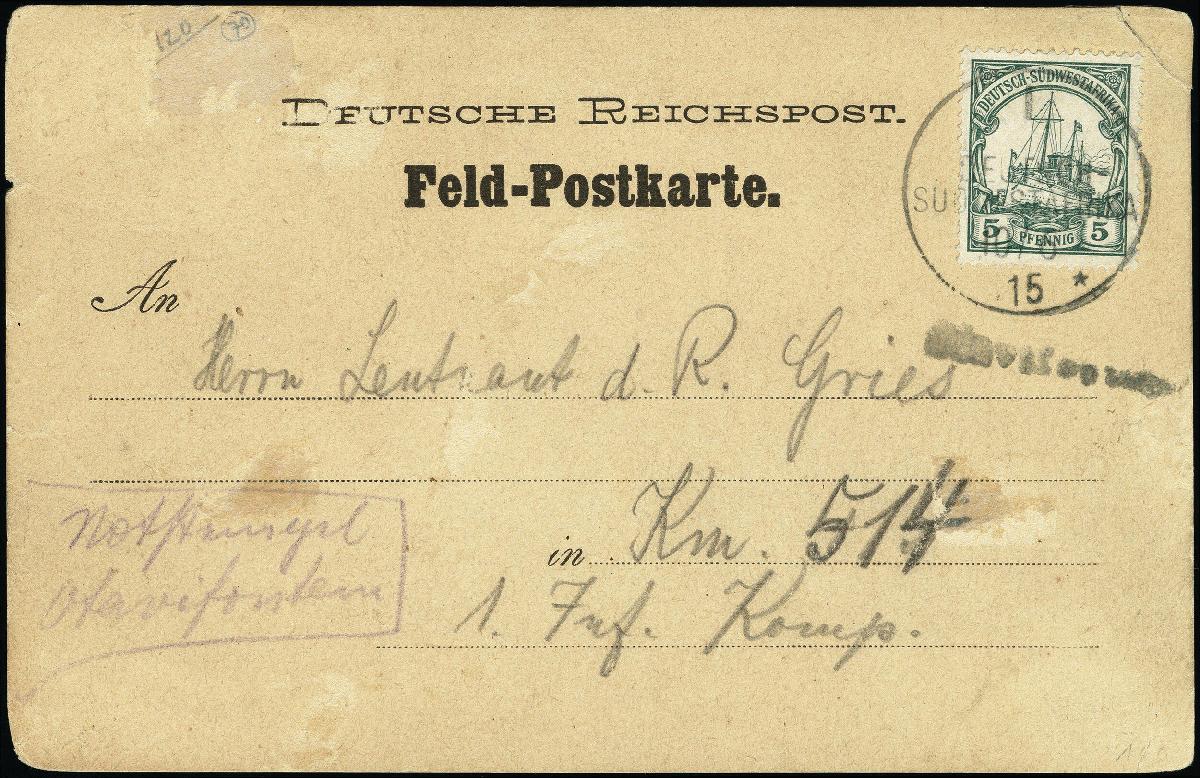 120 70
DEUTSCHE REICHSPOST.
Feld-Postkarte.
DEUTSCH-SÜDWESTAFRIKA
5 PFENNIG 5
L
DEUTSCH-
SÜDWESTAFRIKA
10/6
15 *
An
Herrn Leutnant d. R. Gries
in Km. 514
1. Inf. Komp.
Notstempel
Otavifontein